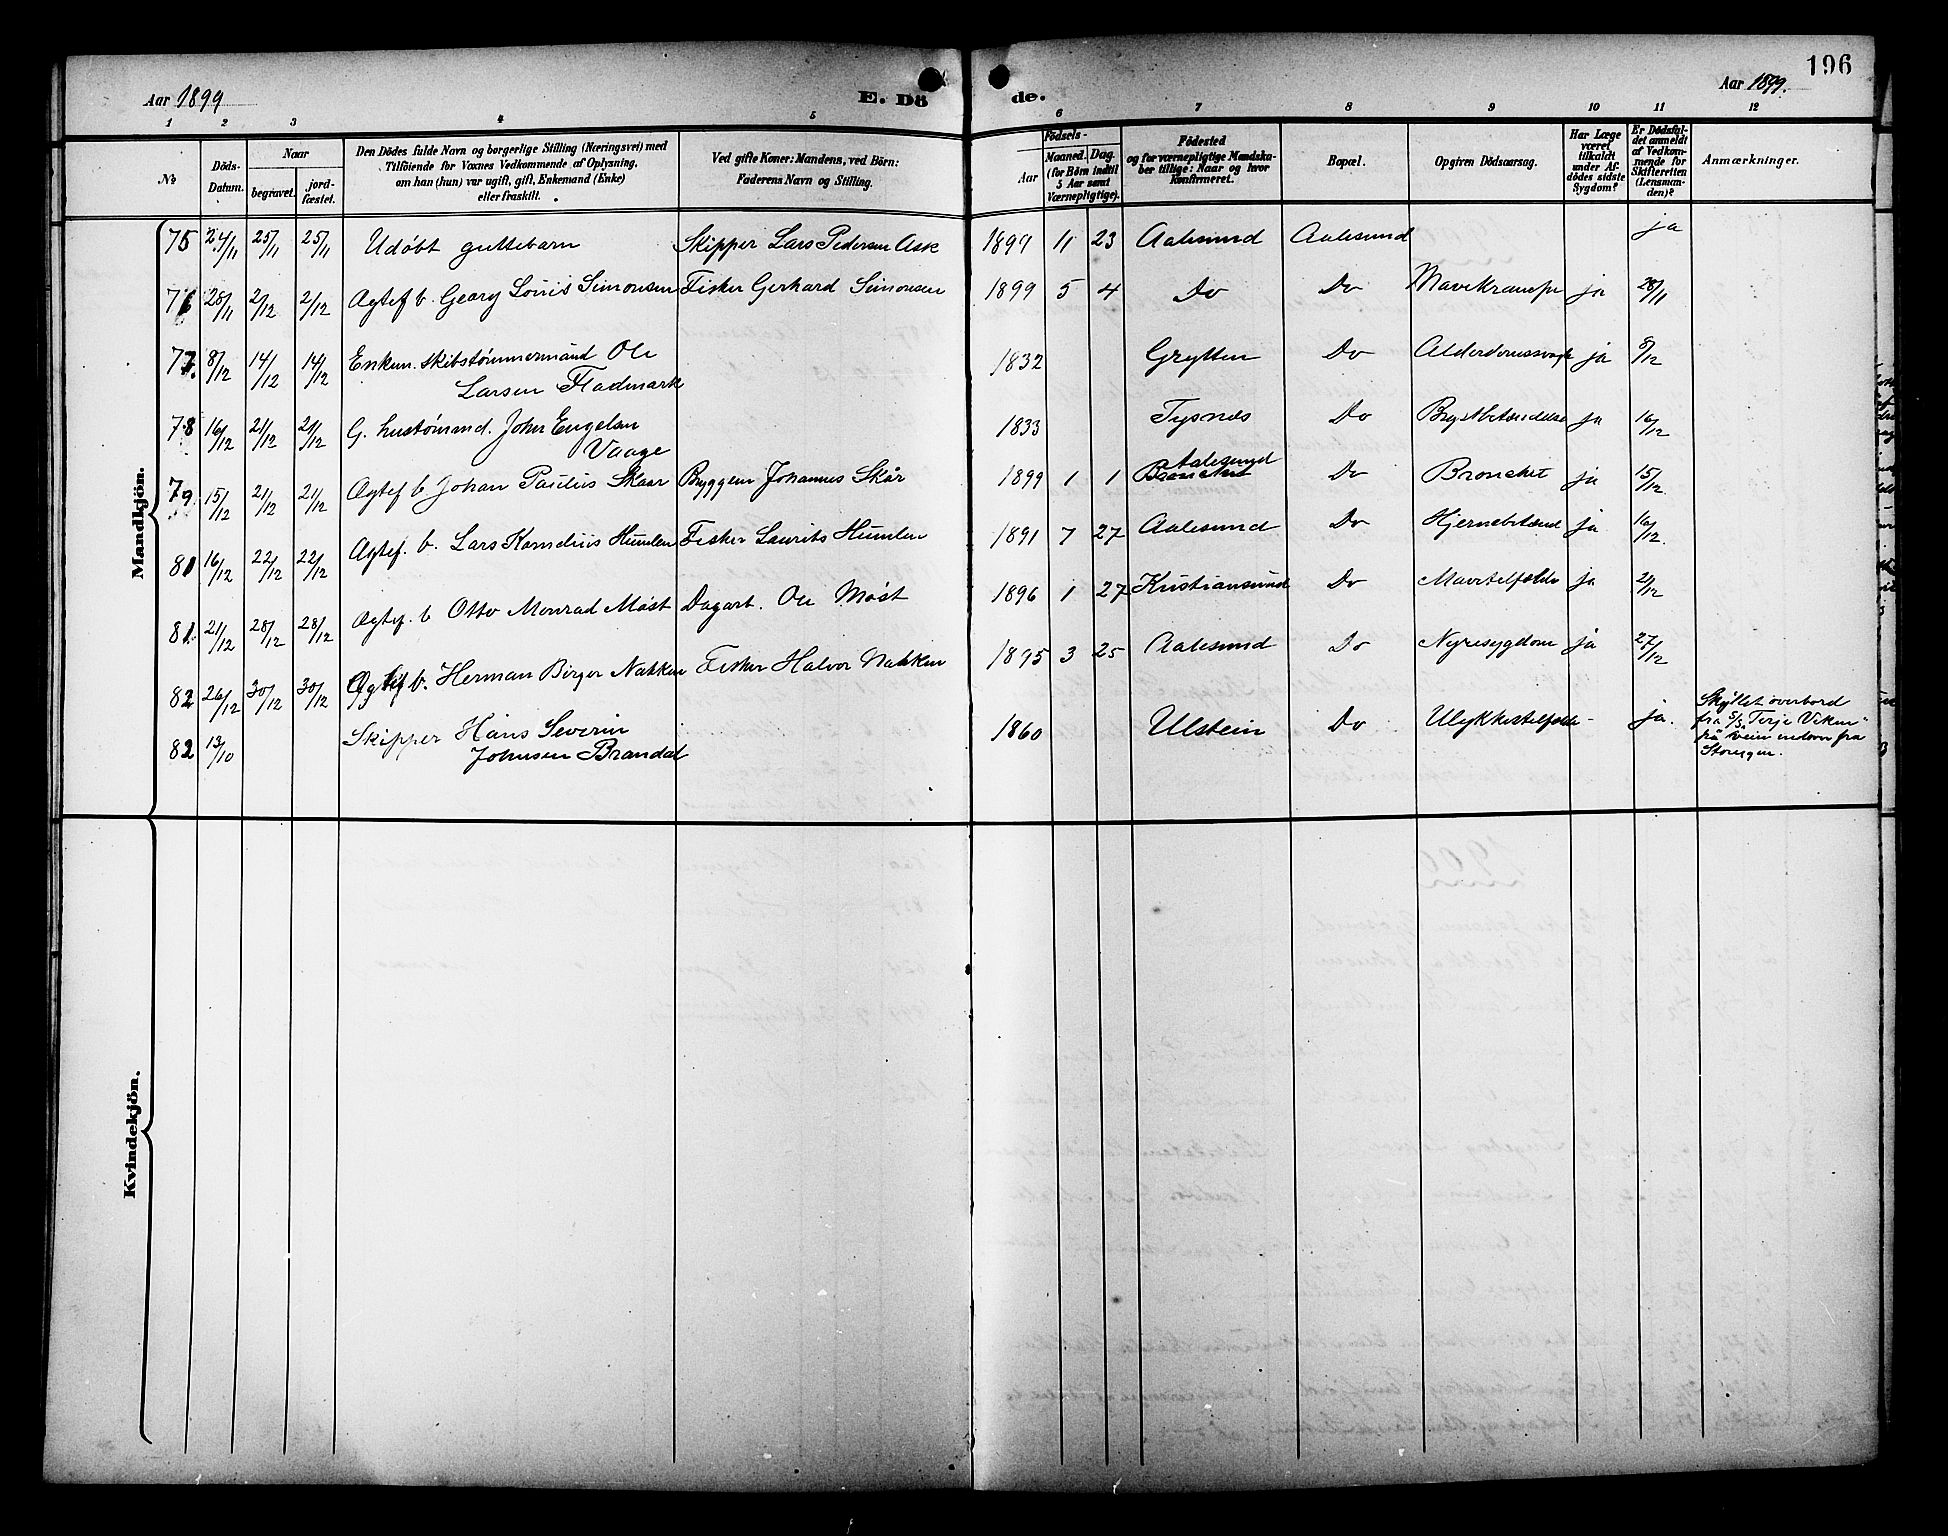 196
Aar 1899 E. Dö de. Aar 1899.
1 2 3 4 5 6 7 8 9 10 11 12
№ Döds-Datum. Naar begravet. jordfæstet. Den Dödes fulde Navn og borgerlige Stilling (Næringsvei) med Tilföiende for Voxnes Vedkommende af Oplysning, om han (hun) var ugift, gift, Enkemand (Enke) eller fraskilt. Ved gifte Koner: Mandens, ved Börn: Faderens Navn og Stilling. Födsels- Aar Maaned. Dag. (for Börn indtil 5 Aar samt Værnepligtige). Födested og for værnepligtige Mandskaber tillige: Naar og hvor Konfirmeret. Bopæl. Opgiven Dödsaarsag. Har Læge været tilkaldt under Afdödes sidste Sygdom? Er Dödsfaldet anmeldt af Vedkommende for Skifteretten (Lensmanden)? Anmærkninger.
Mandkjön.
75 24/11 25/11 25/11 Udøbt guttebarn Skipper Lars Pedersen Ask 1899 11 23 Aalesund Aalesund ja
76 28/11 2/12 2/12 Agtef b. Georg Louis Simonsen Fisker Gerhard Simonsen 1899 5 4 Do Do Mavekrampe ja 28/11
77. 8/12 14/12 14/12 Enkem. skibstømmermand Ole
Larsen Fladmark 1832 Grytten Do Alderdomssvagh ja 8/12
78 16/12 21/12 21/12 G. hustømmd. John Engelsen
Vaage 1833 Tysnæs Do Brystbetændelse ja 16/12
79 15/12 21/12 21/12 Agtef b Johan Paulus Skaar Byggem Johannes Skår 1899 1 1 Aalesund Do Bronchit ja 15/12.
81 16/12 22/12 22/12 Agtef. b. Lars Kornelius Humlen Fisker Laurits Humlen 1891 7 27 Aalesund Do Hjernebetænd ja 16/12.
81. 21/12 28/12 28/12 Agtef. b Otto Monrad Møst Dagarb. Ole Møst 1896 1 27 Kristiansund Do Mavetilfælde ja 21/12
82 26/12 30/12 30/12 Agtef b. Herman Birger Nakken Fisker Halvor Nakken 1895 3 25 Aalesund Do Nyresygdom ja 27/12
82 13/10 Skipper Hans Severin
Johnsen Brandal 1860 Ulstein Do Ulykkestilfælde - ja. Skyllet overbord
fra S/S. "Terje Viken"
på veien indover fra
Storeggen.
Kvindekjön.